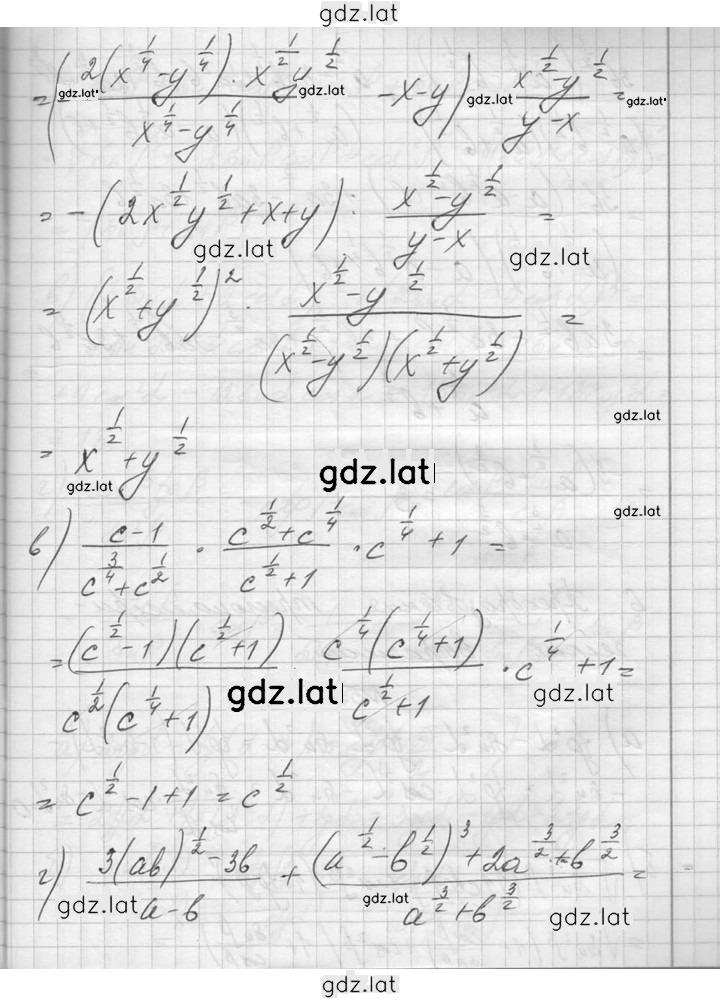 gdz.lat
= ( - 2(x^{1/4} - y^{1/4}) · x^{1/2} y^{1/2} / (x^{1/4} - y^{1/4}) - x - y) gdz.lat (x^{1/2} - y^{1/2}) / (y - x) =
gdz.lat gdz.lat gdz.lat
= -(2x^{1/2} y^{1/2} + x + y) : (x^{1/2} - y^{1/2}) / (y - x) =
gdz.lat gdz.lat
= (x^{1/2} + y^{1/2})^2 · (x^{1/2} - y^{1/2}) / ((x^{1/2} - y^{1/2})(x^{1/2} + y^{1/2})) =
gdz.lat
= x^{1/2} + y^{1/2}
gdz.lat gdz.lat
gdz.lat
в) (c - 1) / (c^{3/4} + c^{1/2}) · (c^{1/2} + c^{1/4}) / (c^{1/2} + 1) · c^{1/4} + 1 =
= (c^{1/2} - 1)(c^{1/2} + 1) / (c^{1/2}(c^{1/4} + 1)) c^{1/4}(c^{1/4} + 1) / (c^{1/2} + 1) · c^{1/4} + 1 =
gdz.lat gdz.lat
= c^{1/2} - 1 + 1 = c^{1/2}
г) (3(ab)^{1/2} - 3b) / (a - b) + ((a^{1/2} - b^{1/2})^3 + 2a^{3/2} + b^{3/2}) / (a^{3/2} + b^{3/2}) =
gdz.lat gdz.lat gdz.lat
gdz.lat